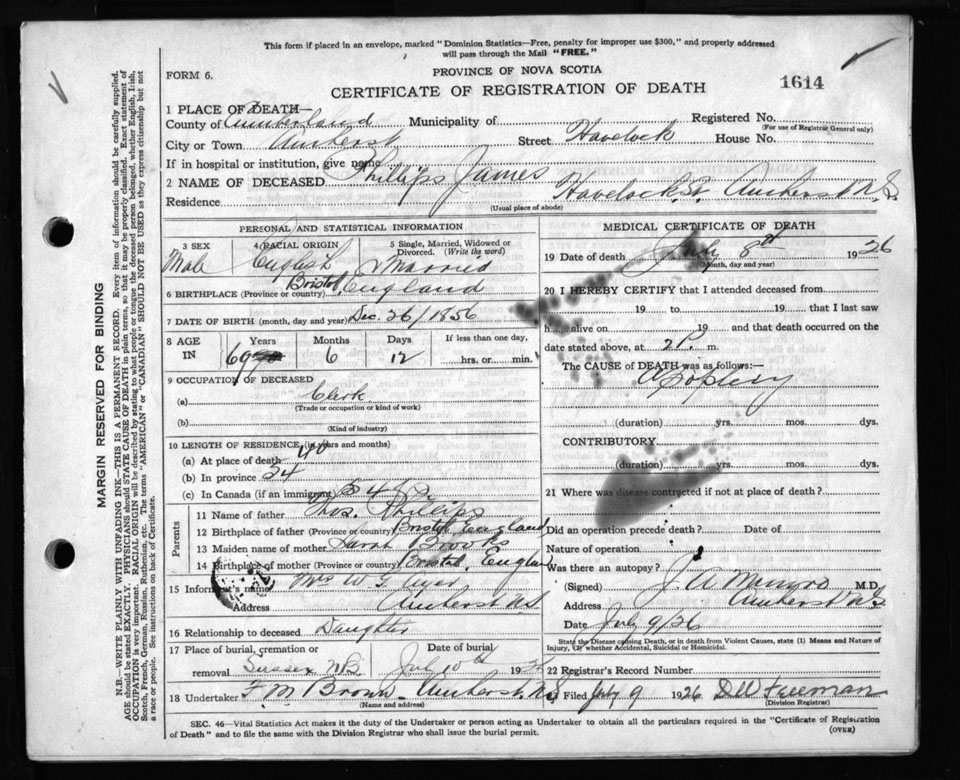 This form if placed in an envelope, marked "Dominion Statistics—Free, penalty for improper use $300," and properly addressed
will pass through the Mail "FREE."
FORM 6.
PROVINCE OF NOVA SCOTIA
CERTIFICATE OF REGISTRATION OF DEATH
1614
1 PLACE OF DEATH—
County of Cumberland Municipality of Registered No.
(For use of Registrar General only)
City or Town Amherst Street Havelock House No.
If in hospital or institution, give name
2 NAME OF DECEASED Phillips James
Residence Havelock St. Amherst N.S.
(Usual place of abode)
PERSONAL AND STATISTICAL INFORMATION
3 SEX 4 RACIAL ORIGIN 5 Single, Married, Widowed or Divorced. (Write the word)
Male English Married
6 BIRTHPLACE (Province or country) Bristol, England
7 DATE OF BIRTH (month, day and year) Dec. 26/1856
8 AGE IN Years Months Days If less than one day,
69 6 12 hrs. or min.
9 OCCUPATION OF DECEASED
(a) Clerk
(Trade or occupation or kind of work)
(b)
(Kind of industry)
10 LENGTH OF RESIDENCE (in years and months)
(a) At place of death 40
(b) In province 54
(c) In Canada (if an immigrant) 54
Parents
11 Name of father Thos. Phillips
12 Birthplace of father (Province or country) Bristol England
13 Maiden name of mother Sarah Brooks
14 Birthplace of mother (Province or country) Bristol, England
15 Informant's name Mrs W. G.
Address Amherst N.S.
16 Relationship to deceased Daughter
17 Place of burial, cremation or removal Date of burial
Sussex N.B. July 10th 1926
18 Undertaker F M Brown. Amherst, N.S.
(Name and address)
MEDICAL CERTIFICATE OF DEATH
19 Date of death July 8th 1926
(Month, day and year)
20 I HEREBY CERTIFY that I attended deceased from
19 to 19 that I last saw
h alive on 19 and that death occurred on
date stated above, at 2 P. m.
The CAUSE of DEATH was as follows:—
Apoplexy
(duration) yrs. mos. dys.
CONTRIBUTORY
(duration) yrs. mos. dys.
21 Where was disease contracted if not at place of death?
Did an operation precede death? Date of
Nature of operation
Was there an autopsy?
(Signed) J. A. Munro M.D.
Address Amherst N.S.
Date July 9/26
State the Disease causing Death, or in death from Violent Causes, state (1) Means and Nature of
Injury, (2) whether Accidental, Suicidal or Homicidal.
22 Registrar's Record Number
Filed July 9 1926 D W Freeman
(Division Registrar)
SEC. 46—Vital Statistics Act makes it the duty of the Undertaker or person acting as Undertaker to obtain all the particulars required in the "Certificate of Registration
of Death" and to file the same with the Division Registrar who shall issue the burial permit.
(OVER)
MARGIN RESERVED FOR BINDING
N.B.—WRITE PLAINLY WITH UNFADING INK—THIS IS A PERMANENT RECORD. Every item of information should be carefully supplied.
AGE should be stated EXACTLY. PHYSICIANS should STATE CAUSE OF DEATH in plain terms, so that it may be properly classified. Exact statement of
OCCUPATION is very important. RACIAL ORIGIN will be described by stating to what people or tongue the deceased person belonged, whether English, Irish,
Scotch, French, German, Russian, Ruthenian, etc. The terms "AMERICAN" or "CANADIAN" SHOULD NOT BE USED as they express citizenship but not
a race or people. See instructions on back of Certificate.